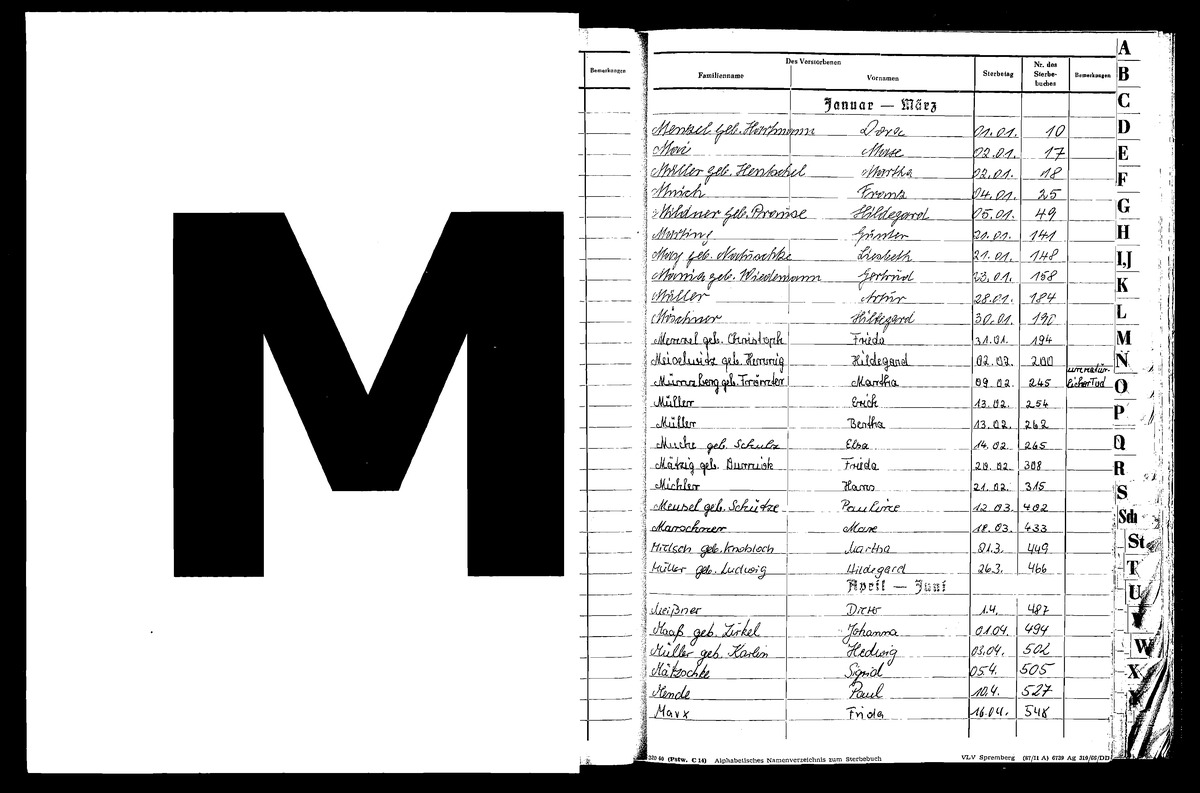 M
Bemerkungen
Des Verstorbenen
Familienname Vornamen Sterbetag Nr. des Sterbe-buches Bemerkungen
Januar — März
Menzel geb. Hartmann Dora 01.01. 10
02.01. 17
Müller geb. Hentschel Martha 02.01. 18
Franz 04.01. 25
Mildner geb. Hildegard 05.01. 49
Günter 21.01. 141
May geb. Liesbeth 21.01. 148
geb. Wiedemann Gertrud 23.01. 158
Müller Artur 28.01. 184
Möschner Hildegard 30.01.
Menzel geb. Christoph Frieda 31.01. 194
geb. Hennig Hildegard 02.02. 200
Münzberg geb. Martha 09.02. 245 unnatür-licher Tod
Müller Erich 13.02. 254
Müller Bertha 13.02. 262
geb. Schulz Elsa 14.02. 265
Mätzig geb. Frieda 20.02. 308
Michler Hans 21.02. 315
Meusel geb. Schütze Pauline 12.03. 402
Marschner Max 18.03. 433
Mitlsch geb. Knobloch Martha 21.3. 449
Müller geb. Ludwig Hildegard 26.3. 466
April — Juni
Meißner Dieter 1.4. 487
Maaß geb. Zirkel Johanna 01.04. 494
Müller geb. Karlin Hedwig 03.04. 502
Mätzschke Sigrid 05.4. 505
Mende Paul 10.4. 527
Marx Frida 16.04. 548
320 60 (Pstw. C 14) Alphabetisches Namenverzeichnis zum Sterbebuch VLV Spremberg (87/11 A) 6739 Ag 310/66/DD
A
B
C
D
E
F
G
H
I,J
K
L
M
N
O
P
Q
R
S
Sch
St
T
U
V
W
X